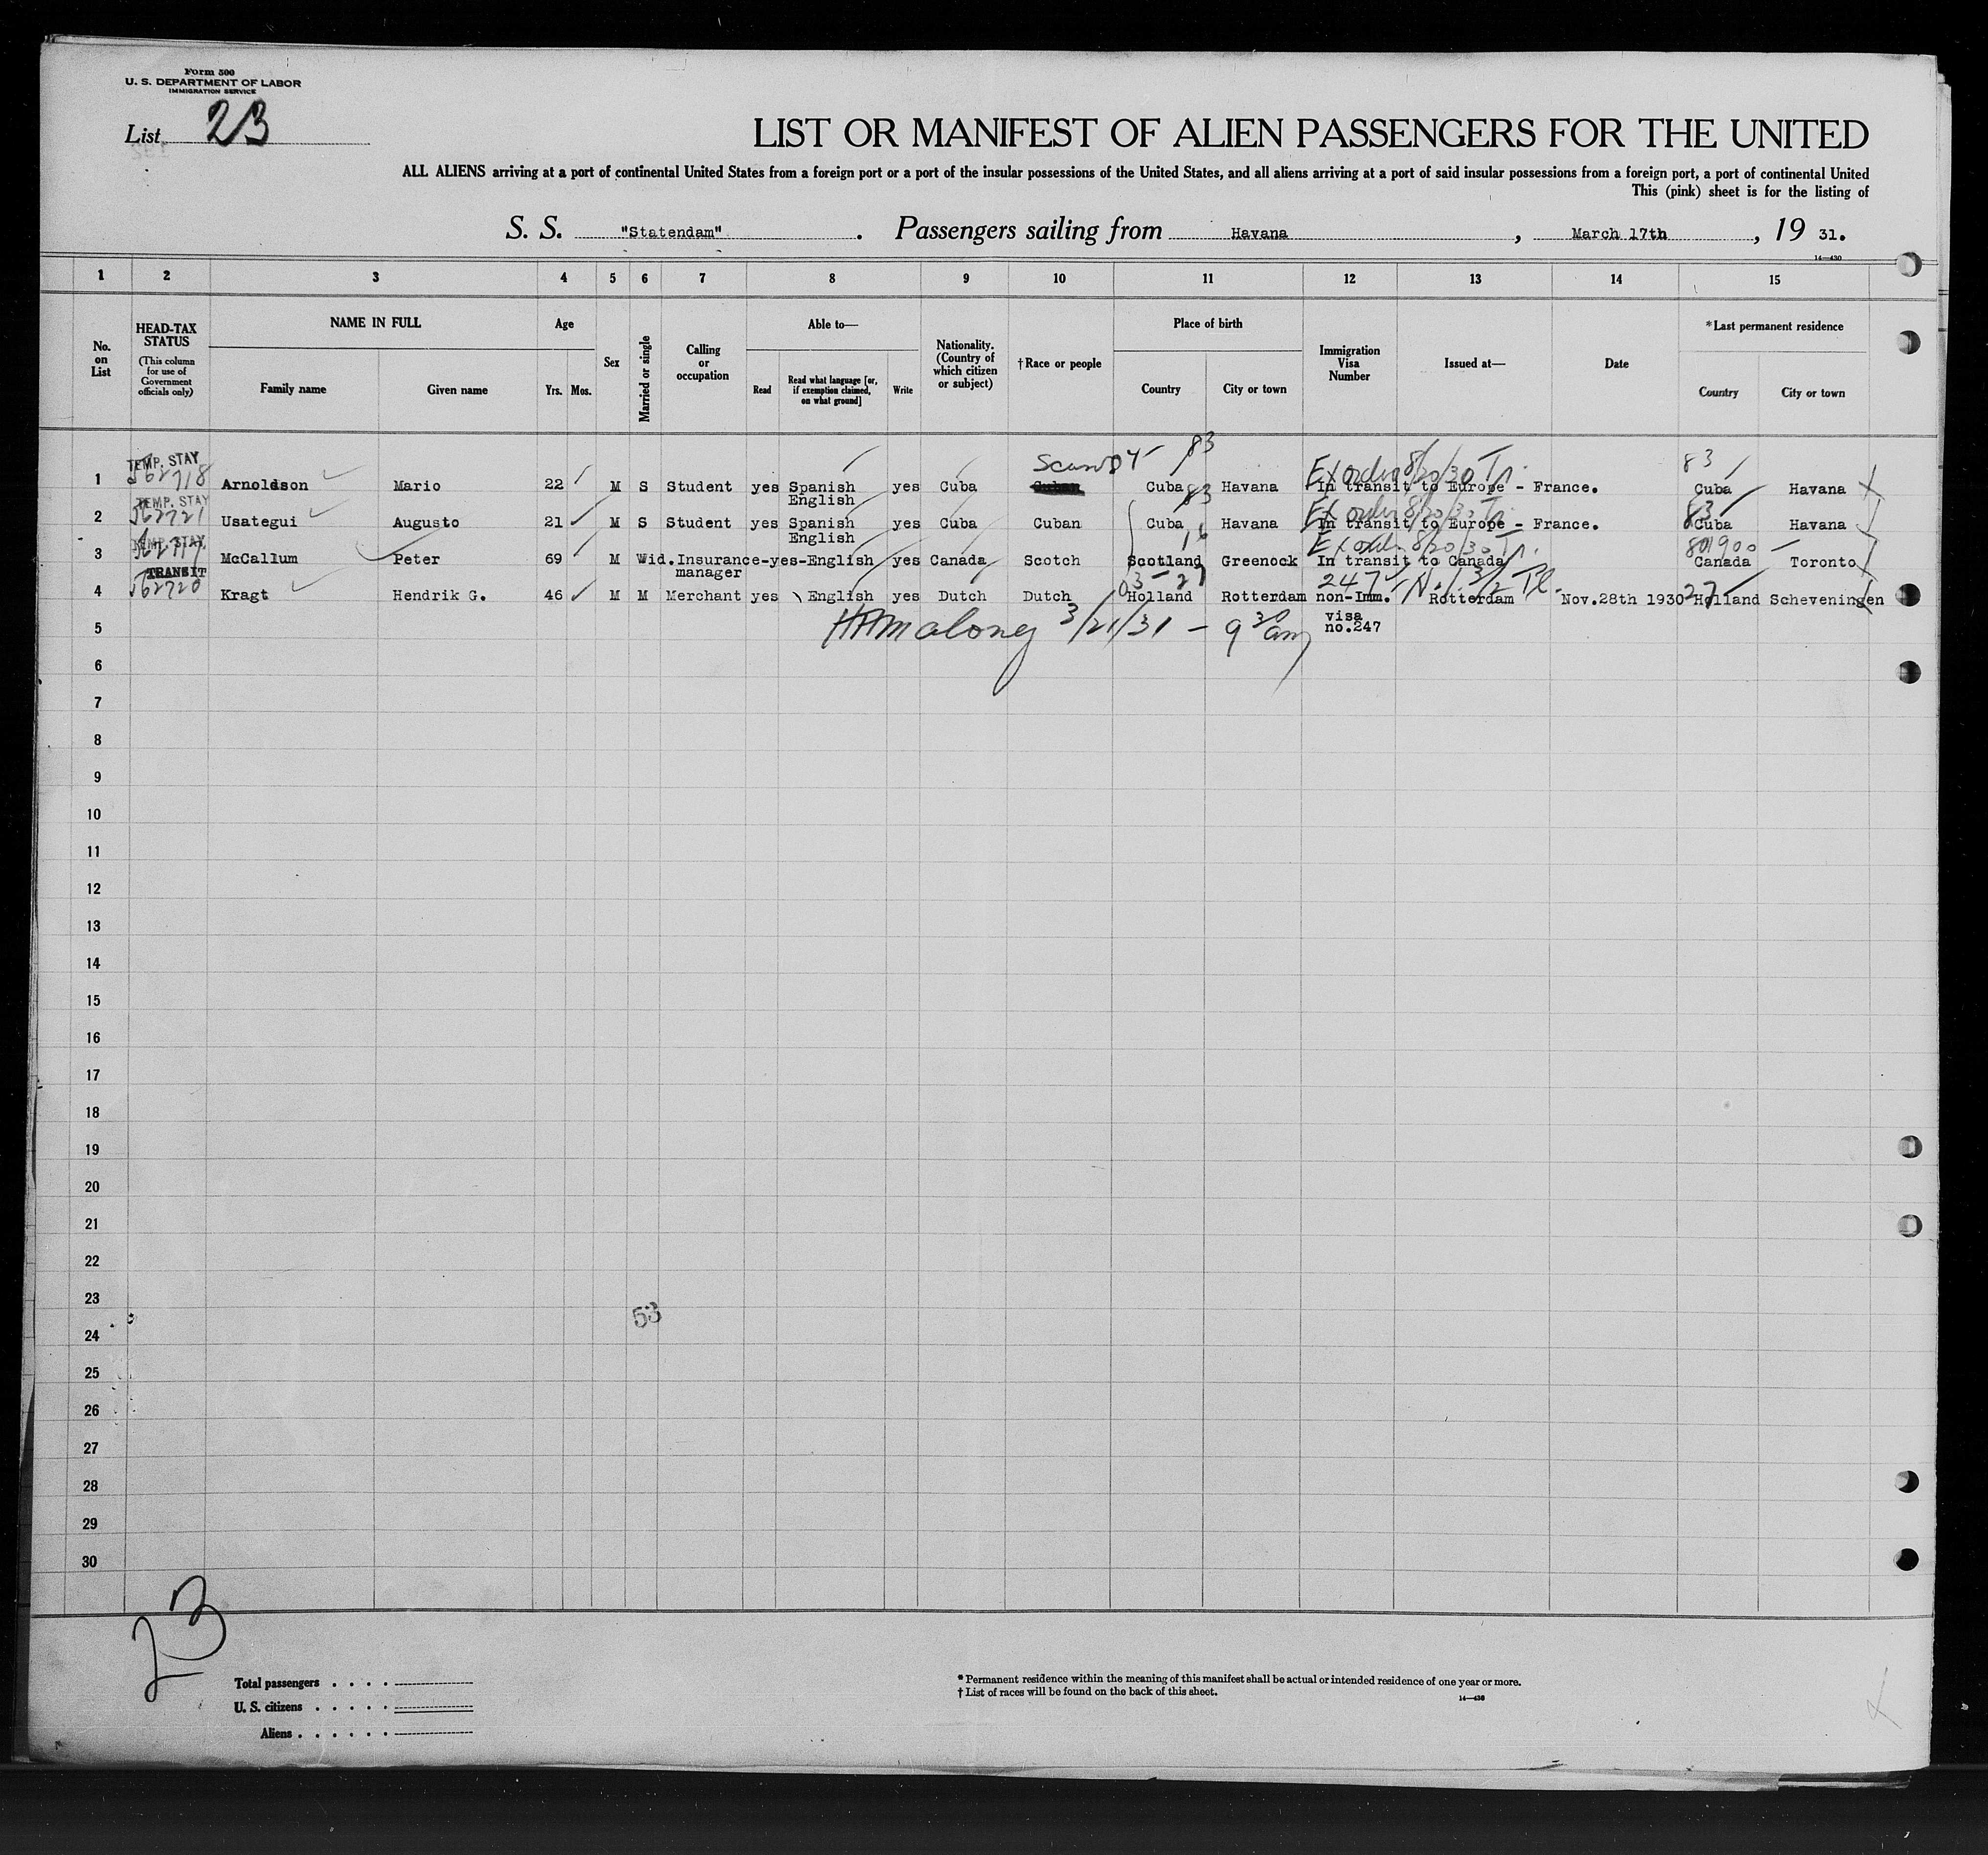 Form 500
U. S. DEPARTMENT OF LABOR
IMMIGRATION SERVICE
List 23
LIST OR MANIFEST OF ALIEN PASSENGERS FOR THE UNITED
ALL ALIENS arriving at a port of continental United States from a foreign port or a port of the insular possessions of the United States, and all aliens arriving at a port of said insular possessions from a foreign port, a port of continental United
This (pink) sheet is for the listing of
S. S. "Statendam". Passengers sailing from Havana, March 17th, 19 31.
14—430
1 2 3 4 5 6 7 8 9 10 11 12 13 14 15
No. on List
HEAD-TAX STATUS
(This column for use of Government officials only)
NAME IN FULL
Family name
Given name
Age
Yrs. Mos.
Sex
Married or single
Calling or occupation
Able to—
Read
Read what language [or, if exemption claimed, on what ground]
Write
Nationality. (Country of which citizen or subject)
†Race or people
Place of birth
Country
City or town
Immigration Visa Number
Issued at—
Date
*Last permanent residence
Country
City or town
Scand 04 83
Ex order 8/20/30 Tr.
83
TEMP. STAY
562718
1 Arnoldson Mario 22 M S Student yes Spanish yes Cuba Cuban Cuba Havana In transit to Europe - France. Cuba Havana
English
TEMP. STAY
562721
83
Ex order 8/20/30 Tr.
83
2 Usategui Augusto 21 M S Student yes Spanish yes Cuba Cuban Cuba Havana In transit to Europe - France. Cuba Havana
English
TEMP. STAY
16
Ex order 8/20/30 Tr.
801900
3 McCallum Peter 69 M Wid. Insurance-yes-English yes Canada Scotch Scotland Greenock In transit to Canada Canada Toronto
manager
TRANSIT
562720
03 - 27
247
3/2
27
4 Kragt Hendrik G. 46 M M Merchant yes English yes Dutch Dutch Holland Rotterdam non-Imm. Rotterdam Nov.28th 1930 Holland Scheveningen
visa
no.247
5 HRMaloney 3/21/31 - 9 30 am
6
7
8
9
10
11
12
13
14
15
16
17
18
19
20
21
22
23
53
24
25
26
27
28
29
30
23
Total passengers
U. S. citizens
Aliens
* Permanent residence within the meaning of this manifest shall be actual or intended residence of one year or more.
† List of races will be found on the back of this sheet.
14—430